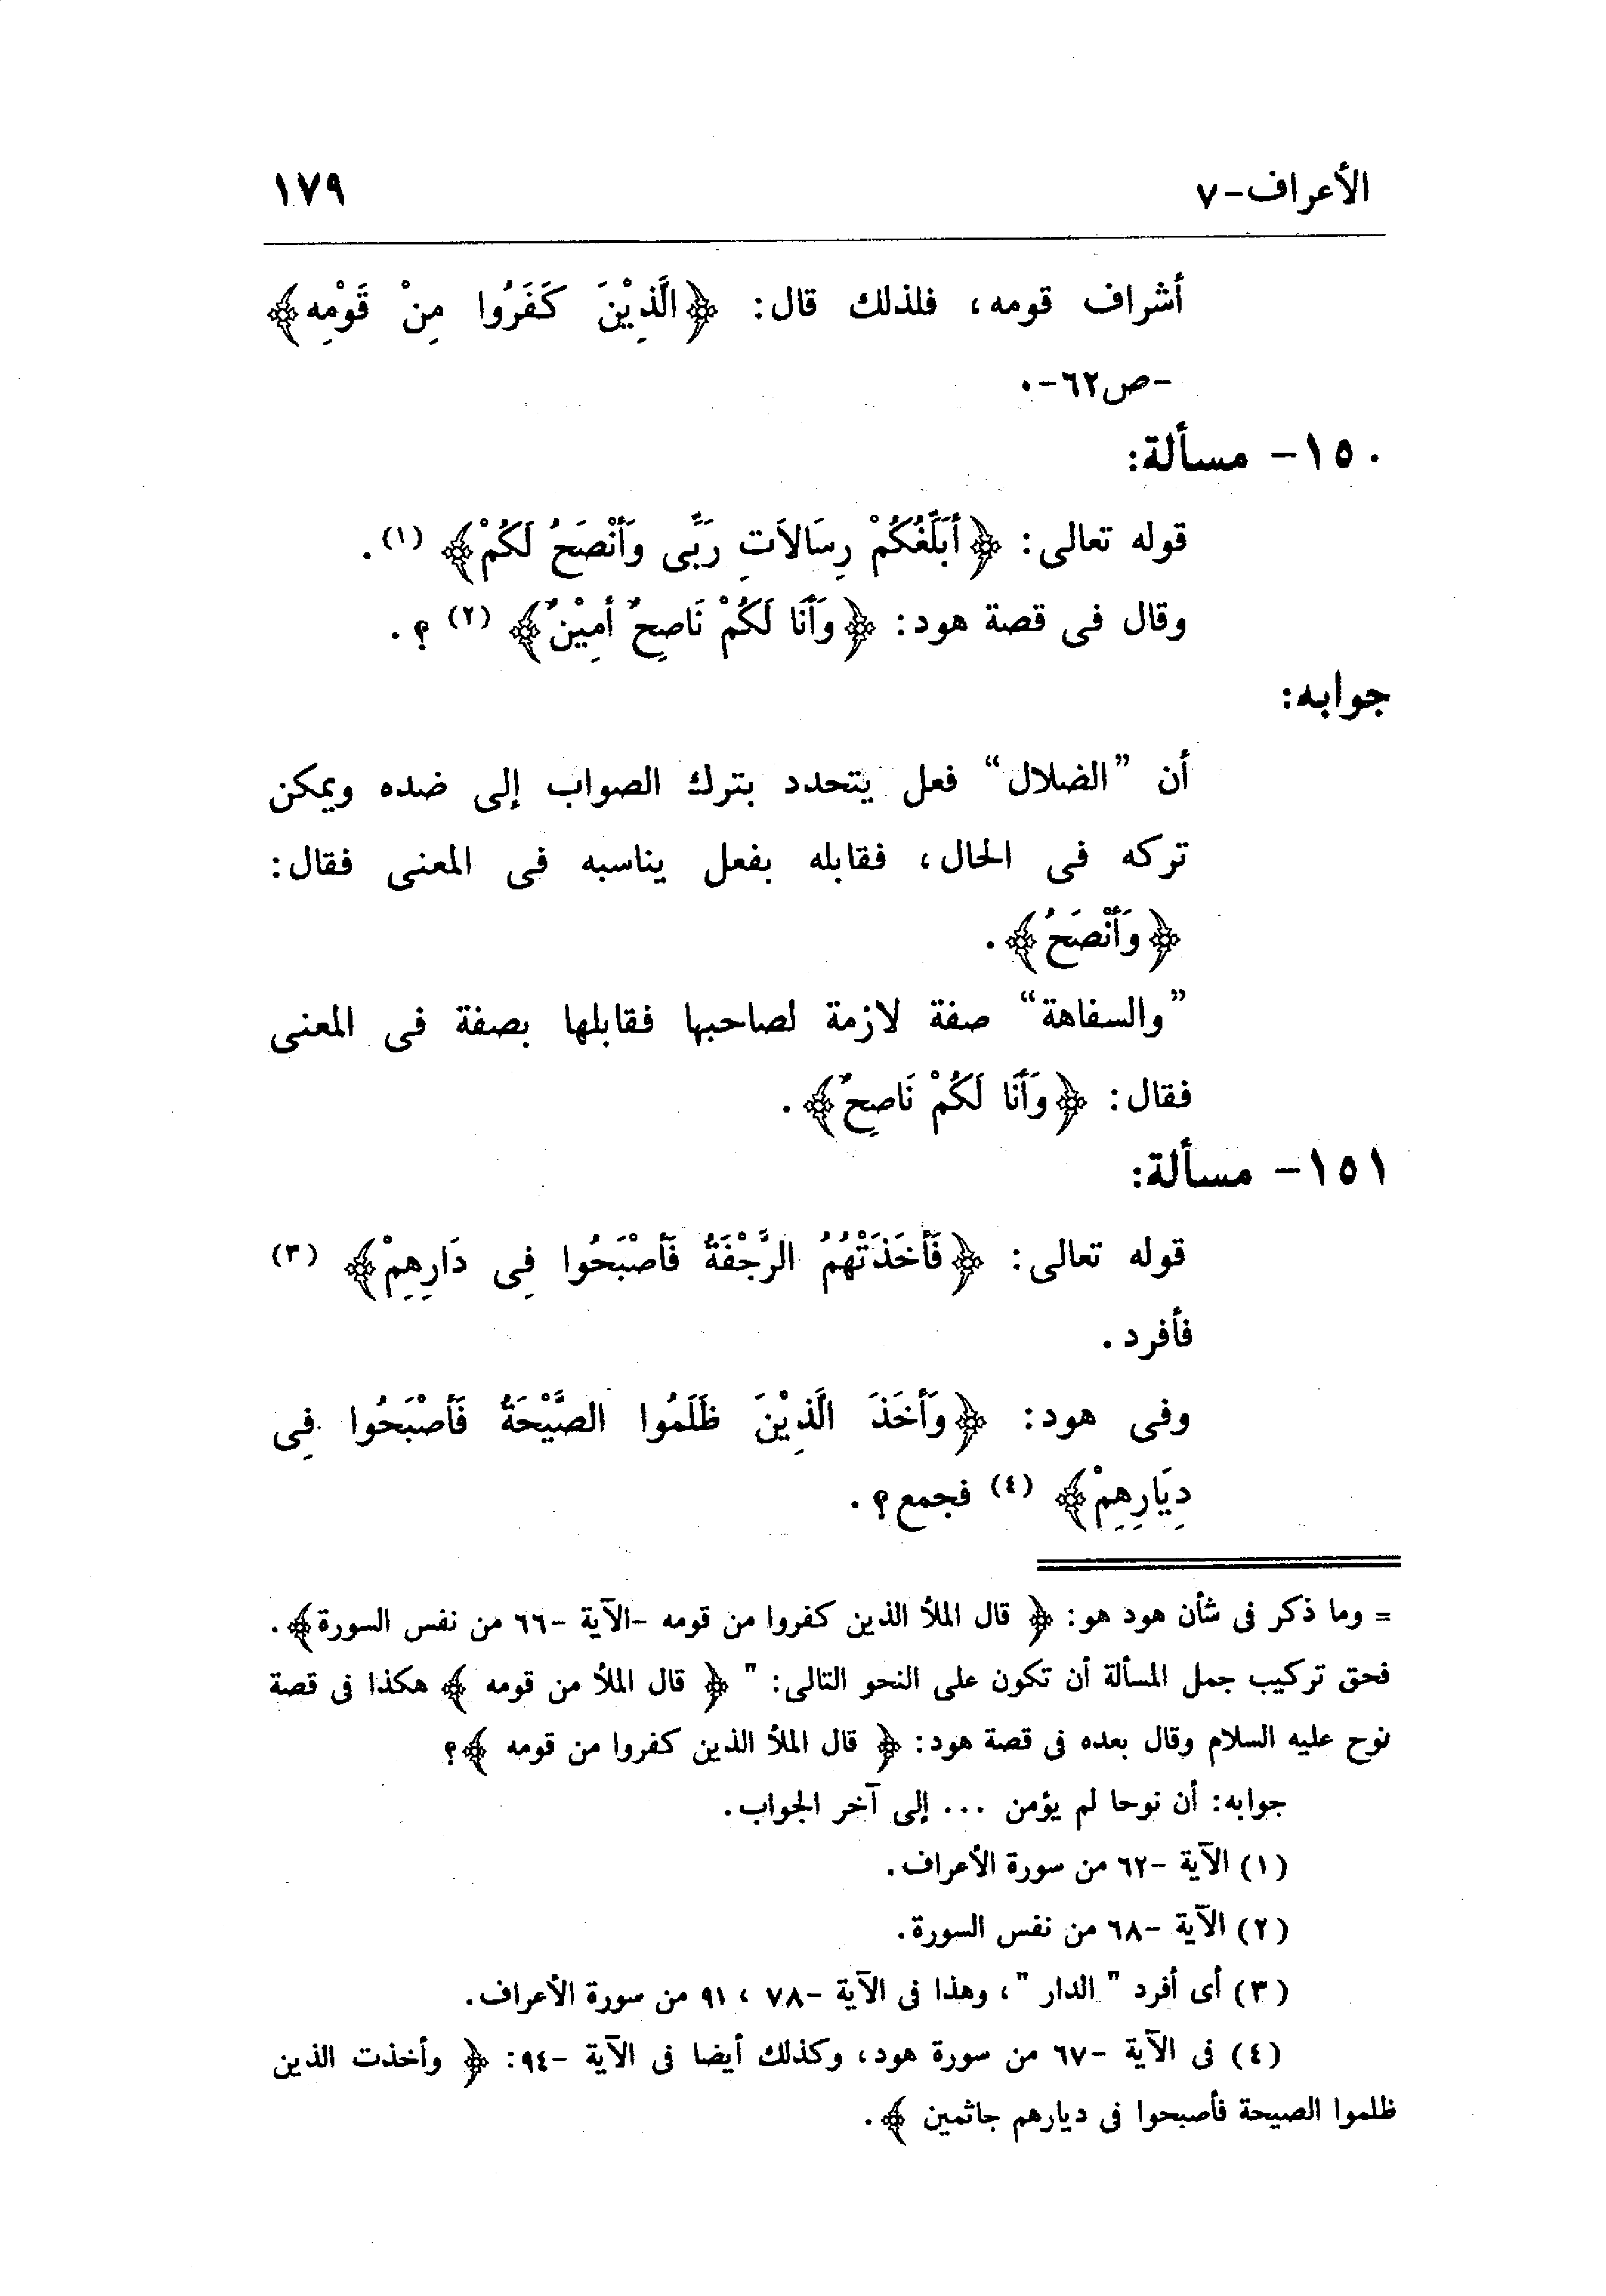 الأعراف-٧ ١٧٩
أشراف قومه، فلذلك قال: ﴿الَّذِيْنَ كَفَرُوا مِنْ قَوْمِه﴾
-ص٦٢-٠
١٥٠- مسألة:
قوله تعالى: ﴿أُبَلِّغُكُمْ رِسَالَاتِ رَبِّى وَأَنْصَحُ لَكُمْ﴾ (١).
وقال فى قصة هود: ﴿وَأَنَا لَكُمْ نَاصِحٌ أَمِيْنٌ﴾ (٢) ؟.
جوابه:
أن "الضلال" فعل يتحدد بترك الصواب إلى ضده ويمكن
تركه فى الحال، فقابله بفعل يناسبه فى المعنى فقال:
﴿وَأَنْصَحُ﴾.
"والسفاهة" صفة لازمة لصاحبها فقابلها بصفة فى المعنى
فقال: ﴿وَأَنَا لَكُمْ نَاصِحٌ﴾.
١٥١- مسألة:
قوله تعالى: ﴿فَأَخَذَتْهُمُ الرَّجْفَةُ فَأَصْبَحُوا فِى دَارِهِمْ﴾ (٣)
فأفرد.
وفى هود: ﴿وَأَخَذَ الَّذِيْنَ ظَلَمُوا الصَّيْحَةُ فَأَصْبَحُوا فِى
دِيَارِهِمْ﴾ (٤) فجمع؟.
= وما ذكر فى شأن هود هو: ﴿ قال الملأ الذين كفروا من قومه -الآية -٦٦ من نفس السورة﴾.
فحق تركيب جمل المسألة أن تكون على النحو التالى: " ﴿ قال الملأ من قومه ﴾ هكذا فى قصة
نوح عليه السلام وقال بعده فى قصة هود: ﴿ قال الملأ الذين كفروا من قومه ﴾؟
جوابه: أن نوحا لم يؤمن ... إلى آخر الجواب.
(١) الآية -٦٢ من سورة الأعراف.
(٢) الآية -٦٨ من نفس السورة.
(٣) أى أفرد " الدار "، وهذا فى الآية -٧٨ ، ٩١ من سورة الأعراف.
(٤) فى الآية -٦٧ من سورة هود، وكذلك أيضا فى الآية -٩٤: ﴿ وأخذت الذين
ظلموا الصيحة فأصبحوا فى ديارهم جاثمين ﴾.